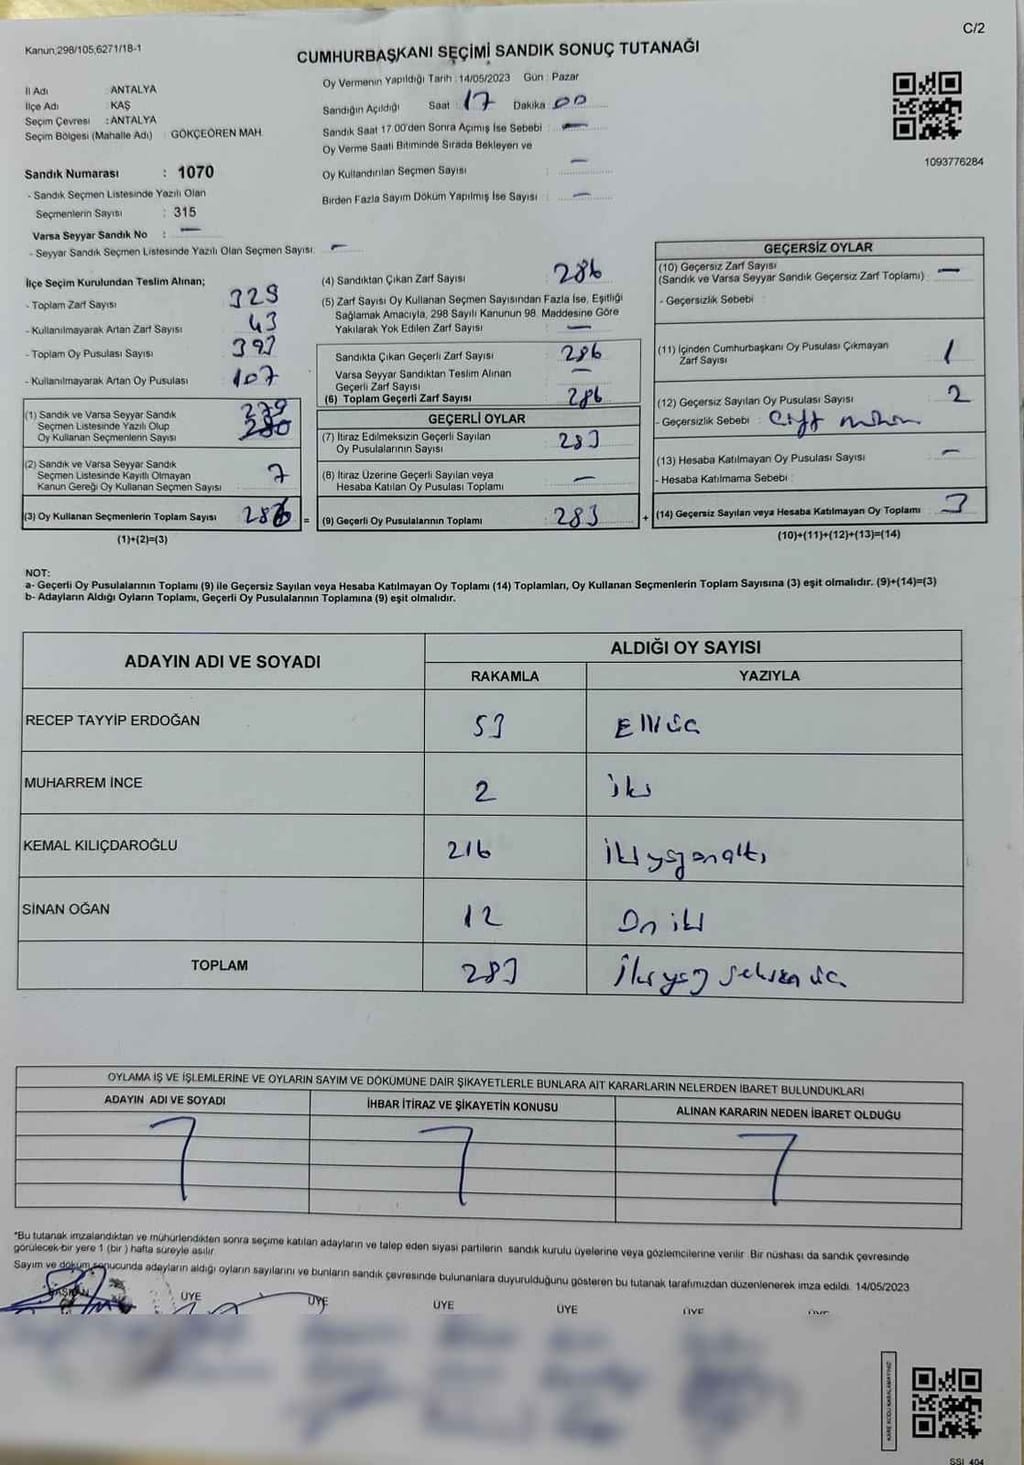 C/2
Kanun;298/105;6271/18-1
CUMHURBAŞKANI SEÇİMİ SANDIK SONUÇ TUTANAĞI
İl Adı : ANTALYA
İlçe Adı : KAŞ
Seçim Çevresi : ANTALYA
Seçim Bölgesi (Mahalle Adı) : GÖKÇEÖREN MAH.
Sandık Numarası : 1070
- Sandık Seçmen Listesinde Yazılı Olan
Seçmenlerin Sayısı : 315
Varsa Seyyar Sandık No : —
- Seyyar Sandık Seçmen Listesinde Yazılı Olan Seçmen Sayısı: —
Oy Vermenin Yapıldığı Tarih : 14/05/2023 Gün : Pazar
Sandığın Açıldığı Saat : 17 Dakika : 00
Sandık Saat 17.00'den Sonra Açımış İse Sebebi : —
Oy Verme Saati Bitiminde Sırada Bekleyen ve
Oy Kullandırılan Seçmen Sayısı : —
Birden Fazla Sayım Döküm Yapılmış İse Sayısı : —
1093776284
İlçe Seçim Kurulundan Teslim Alınan;
- Toplam Zarf Sayısı 329
- Kullanılmayarak Artan Zarf Sayısı 43
- Toplam Oy Pusulası Sayısı 393
- Kullanılmayarak Artan Oy Pusulası 107
(1) Sandık ve Varsa Seyyar Sandık
Seçmen Listesinde Yazılı Olup
Oy Kullanan Seçmenlerin Sayısı 279 280
(2) Sandık ve Varsa Seyyar Sandık
Seçmen Listesinde Kayıtlı Olmayan
Kanun Gereği Oy Kullanan Seçmen Sayısı 7
(3) Oy Kullanan Seçmenlerin Toplam Sayısı 286
(1)+(2)=(3)
=
(4) Sandıktan Çıkan Zarf Sayısı 286
(5) Zarf Sayısı Oy Kullanan Seçmen Sayısından Fazla İse, Eşitliği
Sağlamak Amacıyla, 298 Sayılı Kanunun 98. Maddesine Göre
Yakılarak Yok Edilen Zarf Sayısı —
Sandıkta Çıkan Geçerli Zarf Sayısı 286
Varsa Seyyar Sandıktan Teslim Alınan
Geçerli Zarf Sayısı —
(6) Toplam Geçerli Zarf Sayısı 286
GEÇERLİ OYLAR
(7) İtiraz Edilmeksizin Geçerli Sayılan
Oy Pusulalarının Sayısı 283
(8) İtiraz Üzerine Geçerli Sayılan veya
Hesaba Katılan Oy Pusulası Toplamı —
(9) Geçerli Oy Pusulalarının Toplamı 283
+
GEÇERSİZ OYLAR
(10) Geçersiz Zarf Sayısı
(Sandık ve Varsa Seyyar Sandık Geçersiz Zarf Toplamı) : —
- Geçersizlik Sebebi :
(11) İçinden Cumhurbaşkanı Oy Pusulası Çıkmayan
Zarf Sayısı 1
(12) Geçersiz Sayılan Oy Pusulası Sayısı 2
- Geçersizlik Sebebi : Çift mühür
(13) Hesaba Katılmayan Oy Pusulası Sayısı —
- Hesaba Katılmama Sebebi :
(14) Geçersiz Sayılan veya Hesaba Katılmayan Oy Toplamı 3
(10)+(11)+(12)+(13)=(14)
NOT:
a- Geçerli Oy Pusulalarının Toplamı (9) ile Geçersiz Sayılan veya Hesaba Katılmayan Oy Toplamı (14) Toplamları, Oy Kullanan Seçmenlerin Toplam Sayısına (3) eşit olmalıdır. (9)+(14)=(3)
b- Adayların Aldığı Oyların Toplamı, Geçerli Oy Pusulalarının Toplamına (9) eşit olmalıdır.
ADAYIN ADI VE SOYADI ALDIĞI OY SAYISI
RAKAMLA YAZIYLA
RECEP TAYYİP ERDOĞAN 53 Elliüç
MUHARREM İNCE 2 İki
KEMAL KILIÇDAROĞLU 216 İkiyüzonaltı
SİNAN OĞAN 12 On iki
TOPLAM 283 İkiyüz seksen üç
OYLAMA İŞ VE İŞLEMLERİNE VE OYLARIN SAYIM VE DÖKÜMÜNE DAİR ŞİKAYETLERLE BUNLARA AİT KARARLARIN NELERDEN İBARET BULUNDUKLARI
ADAYIN ADI VE SOYADI İHBAR İTİRAZ VE ŞİKAYETİN KONUSU ALINAN KARARIN NEDEN İBARET OLDUĞU
*Bu tutanak imzalandıktan ve mühürlendikten sonra seçime katılan adayların ve talep eden siyasi partilerin sandık kurulu üyelerine veya gözlemcilerine verilir. Bir nüshası da sandık çevresinde
görülecek bir yere 1 (bir ) hafta süreyle asılır.
Sayım ve döküm sonucunda adayların aldığı oyların sayılarını ve bunların sandık çevresinde bulunanlara duyurulduğunu gösteren bu tutanak tarafımızdan düzenlenerek imza edildi. 14/05/2023
BAŞKAN ÜYE ÜYE ÜYE ÜYE ÜYE ÜYE
KARE KODU KARALAMAYINIZ
SSI_404